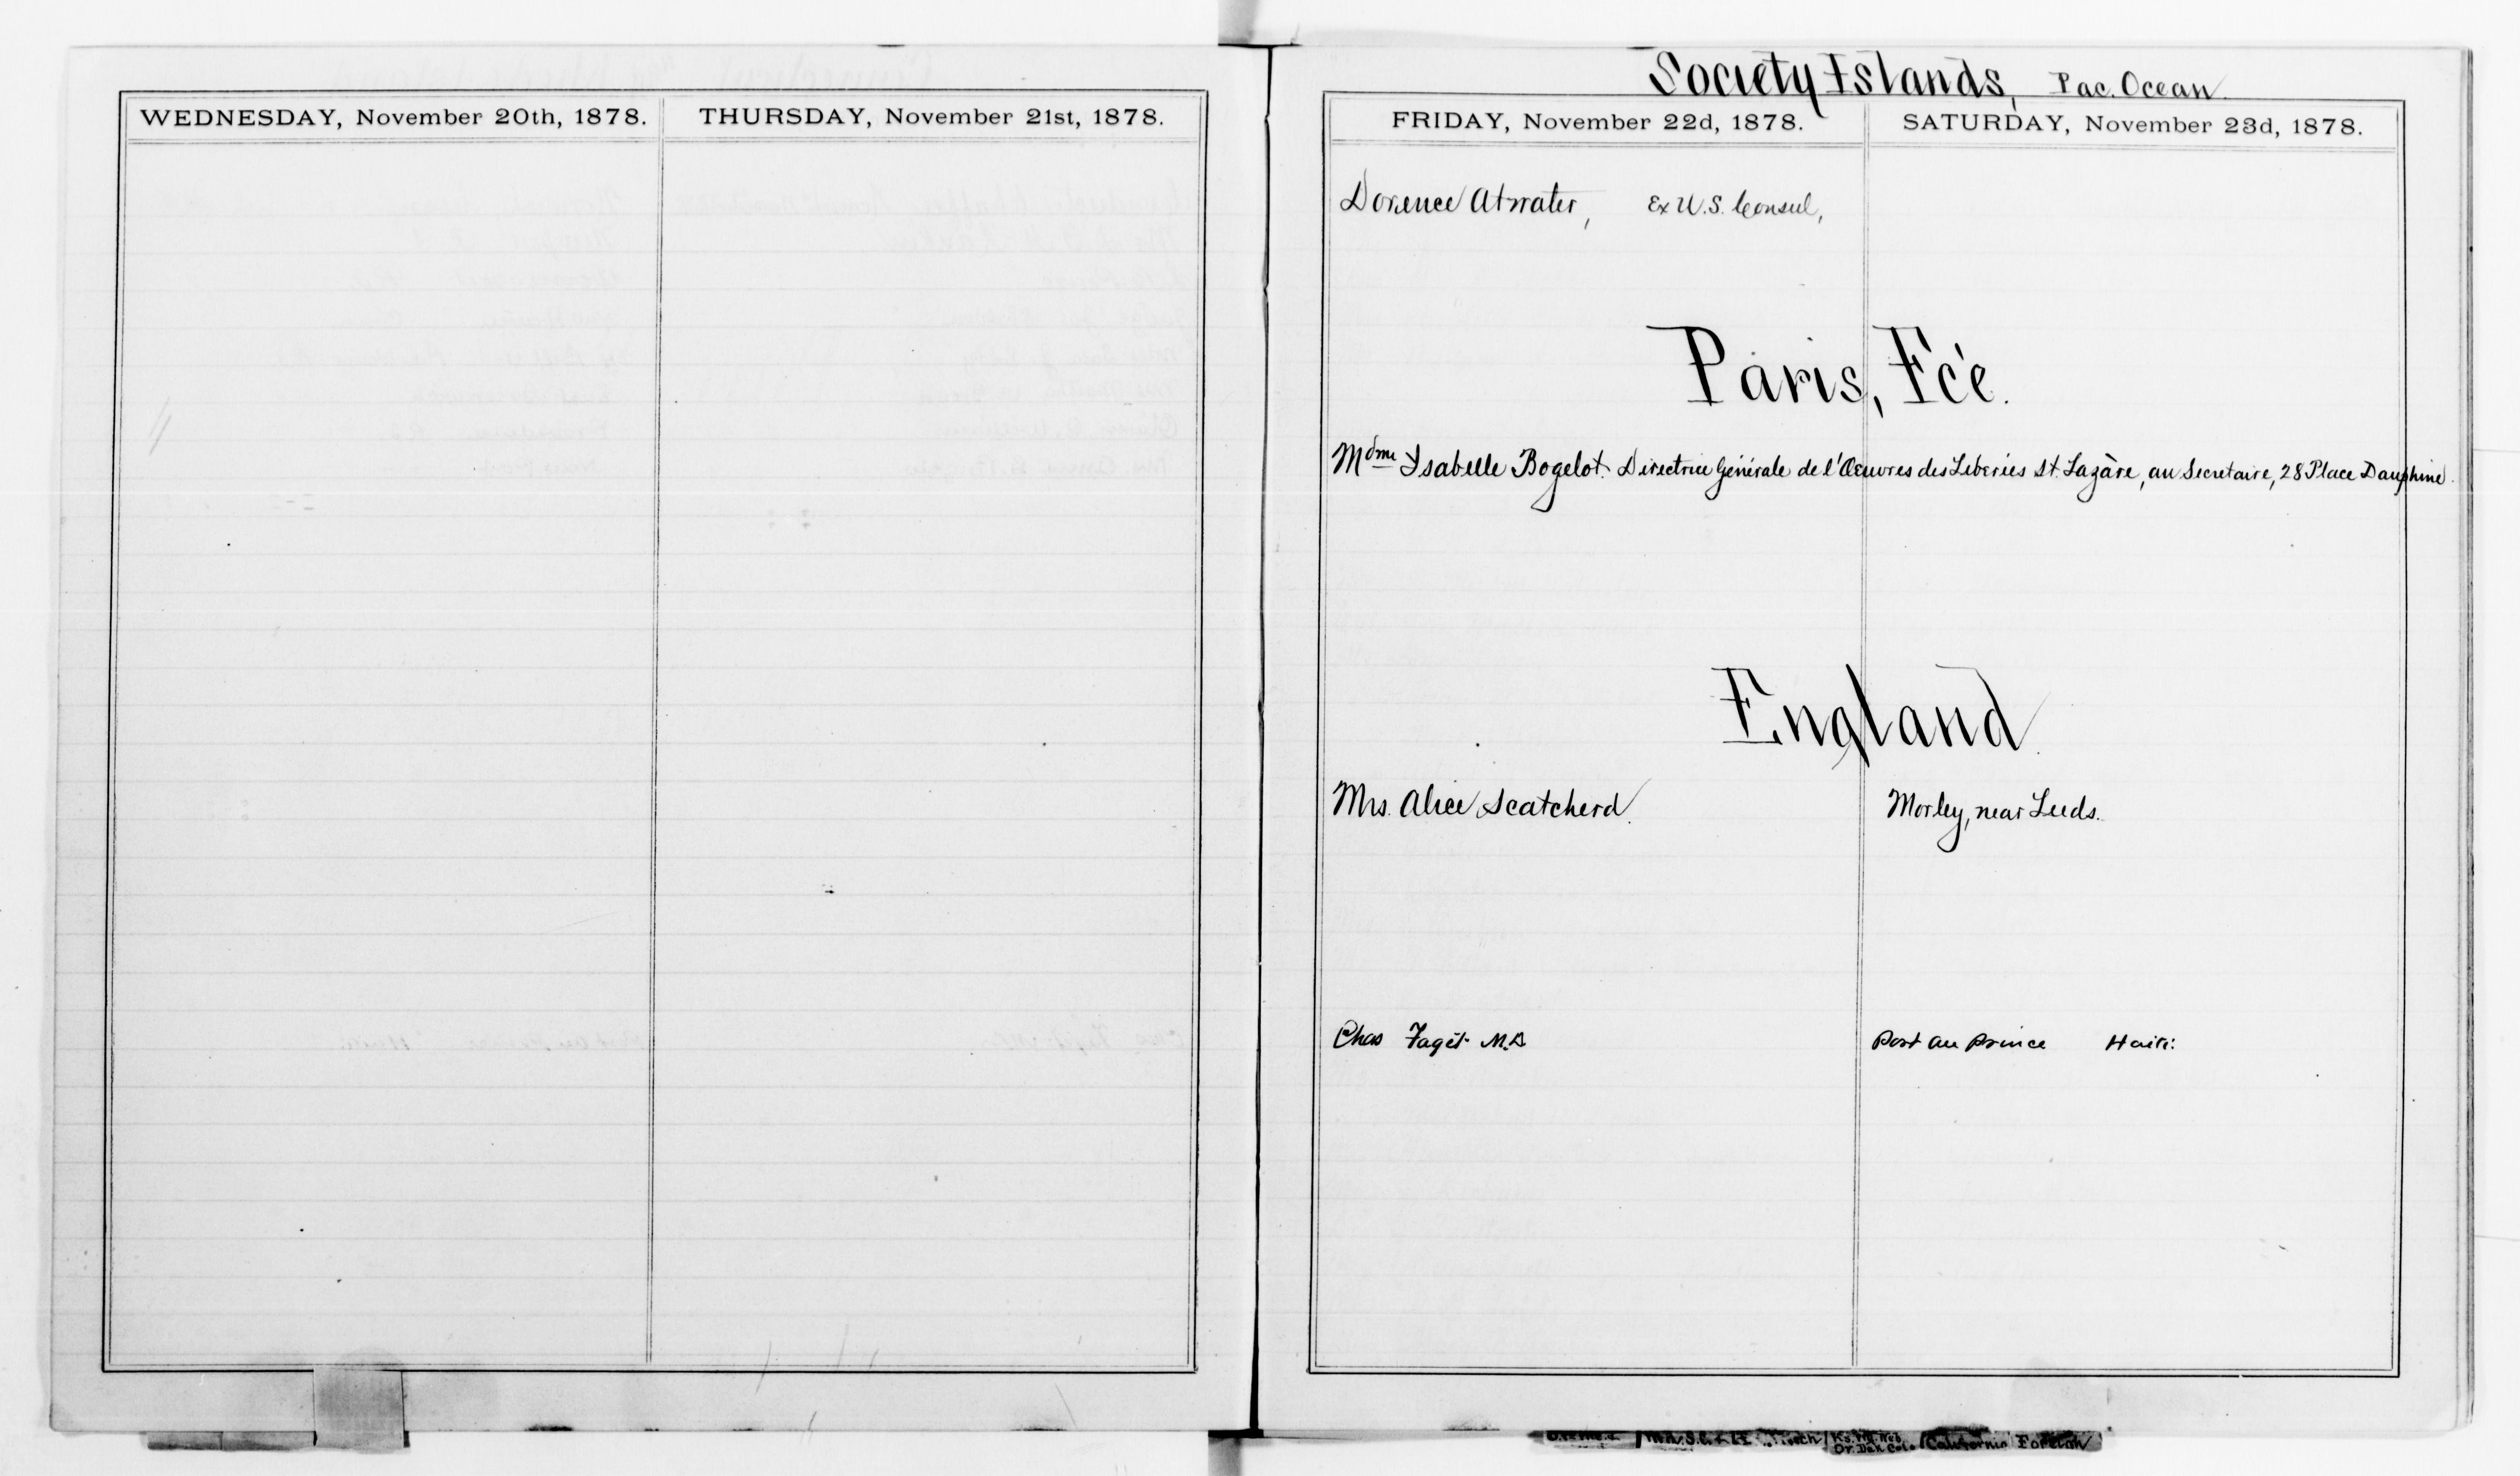 WEDNESDAY, November 20th, 1878.
THURSDAY, November 21st, 1878.
Society Islands, Pac. Ocean.
FRIDAY, November 22d, 1878.
SATURDAY, November 23d, 1878.
Dorence Atwater, Ex U.S. Consul,
Paris, Fce.
Mdme Isabelle Bogelot. Directrice Générale de l'Œuvres des Liberies St. Lazàre, au Secretaire, 28 Place Dauphine.
England.
Mrs. Alice Scatcherd. Morley, near Leeds.
Chas Faget M.D Port au Prince Haiti
California Foreign